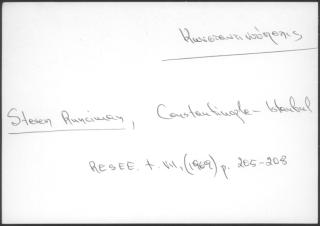 Κωνσταντινούπολις
Steven Runciman, Constantinople - Istanbul
RESEE. t. VII, (1969) p. 205-208